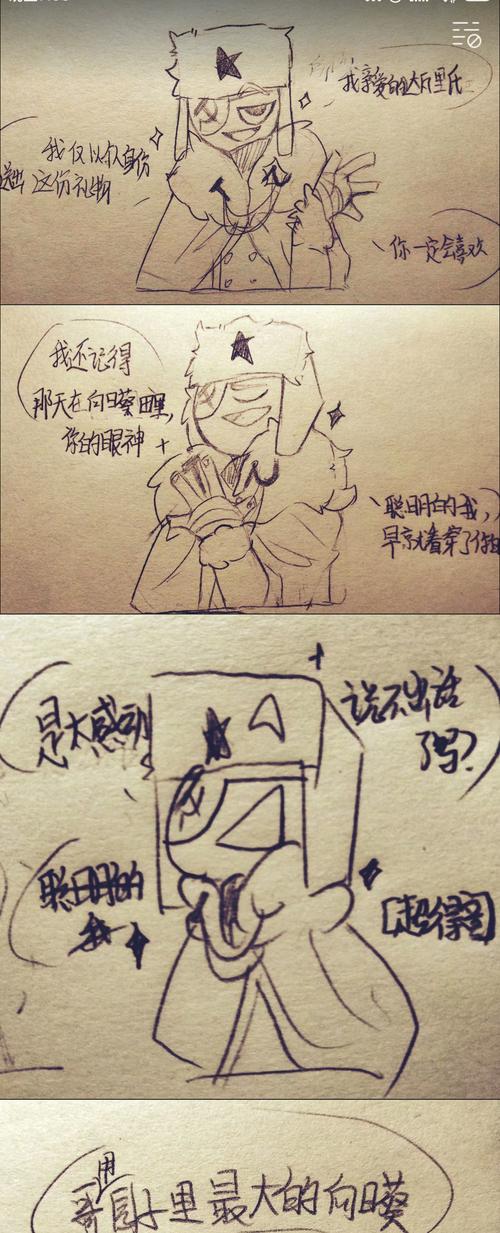 我亲爱的达瓦里氏
我仅以个人身份
送出这份礼物
你一定会喜欢
我还记得
那天在向日葵田里,
你的眼神
聪明的我,
早就看穿了你
是太感动
说不出话
了吗?
聪明的
我
[超得意]
用
哥园子里最大的向日葵